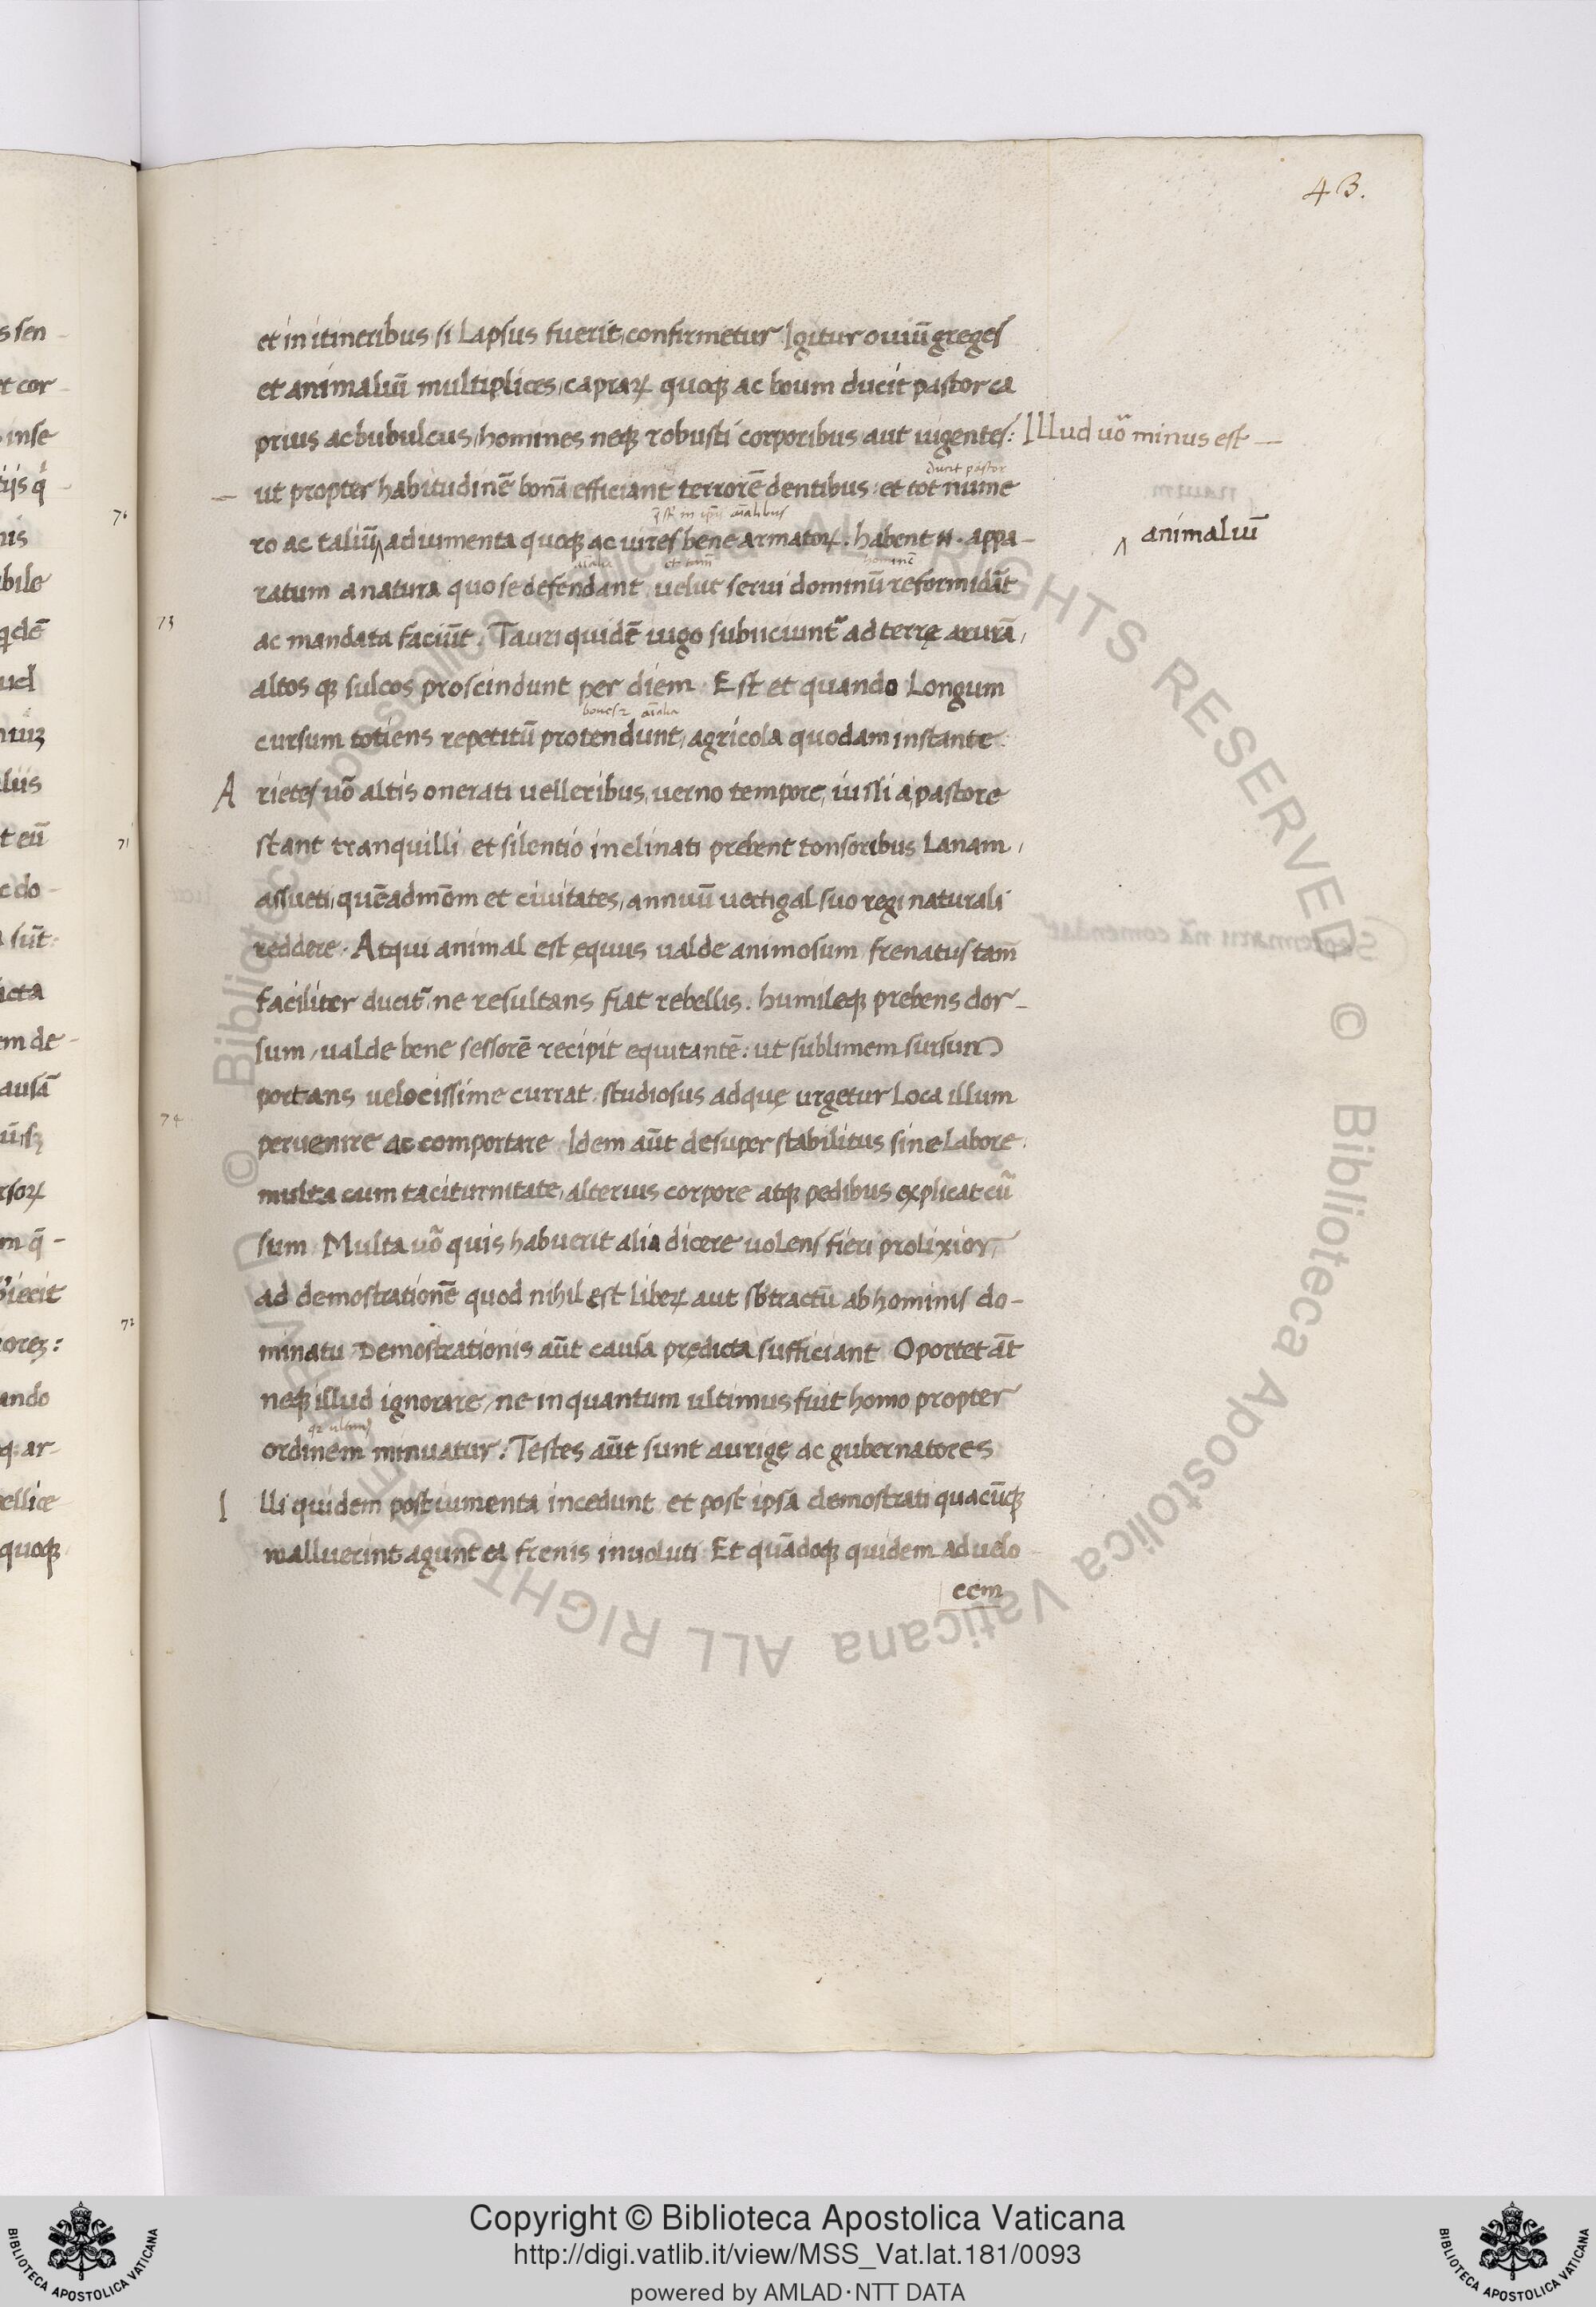 43.
et in itineribus si Lapsus fuerit, confirmetur. Igitur ouiū greges
et animaliū multiplices, caprarꝝ quoqꝫ ac boum ducit pastor ca
prius ac bubulcus, homines neqꝫ robusti corporibus aut uigentes: Illud uō minus est —
ducit pastor
— ut propter habitudinē bonā efficiant terrorē dentibus: et tot nume
ro ac taliū ‸ adiumenta quoqꝫ ac uires bene armatorꝝ. habent .n. appa-
‸ animaliū
ratum a natura quo se defendant, uelut serui dominū reformidāt
73
ac mandata faciūt. Tauri quidē iugo subiiciuntr̄ ad terrę arurā,
altos qꝫ sulcos proscindunt per diem. Est et quando Longum
cursum totiens repetitū protendunt, agricola quodam instante.
Arietes uō altis onerati uelleribus, uerno tempore, iussi a pastore
stant tranquilli et silentio inclinati prebent tonsoribus Lanam,
assueti, quēadmōm et ciuitates, annuū uectigal suo regi naturali
reddere. Atqui animal est ęquus ualde animosum frenatus tam̄
faciliter ducitr̄ ne resultans fiat rebellis. humileqꝫ prebens dor-
sum, ualde bene sessorē recipit equitantē: ut sublimem sursum
portans uelocissime currat. studiosus ad quę urgetur Loca illum
74
peruenire ac comportare. Idem aūt desuper stabilitus sine Labore.
multa cum taciturnitate, alterius corpore atqꝫ pedibus explicat cū
sum. Multa uō quis habuerit alia dicere uolens fieri prolixior,
ad demostrationē quod nihil est liberꝝ aut sb̄tractū ab hominis do-
minatu. Demostrationis aūt causa prędicta sufficiant. Oportet āt
neqꝫ illud ignorare, ne in quantum ultimus fuit homo propter
ordinem minuatur. Testes aūt sunt aurigę ac gubernatores
Illi quidem post iumenta incedunt et post ipsa demostrati quacūqꝫ
malluerint agunt ea frenis inuoluti. Et quādoqꝫ quidem ad uelo
cem
Copyright © Biblioteca Apostolica Vaticana
http://digi.vatlib.it/view/MSS_Vat.lat.181/0093
powered by AMLAD·NTT DATA
© Biblioteca Apostolica Vaticana ALL RIGHTS RESERVED
BIBLIOTECA APOSTOLICA VATICANA
BIBLIOTECA APOSTOLICA VATICANA